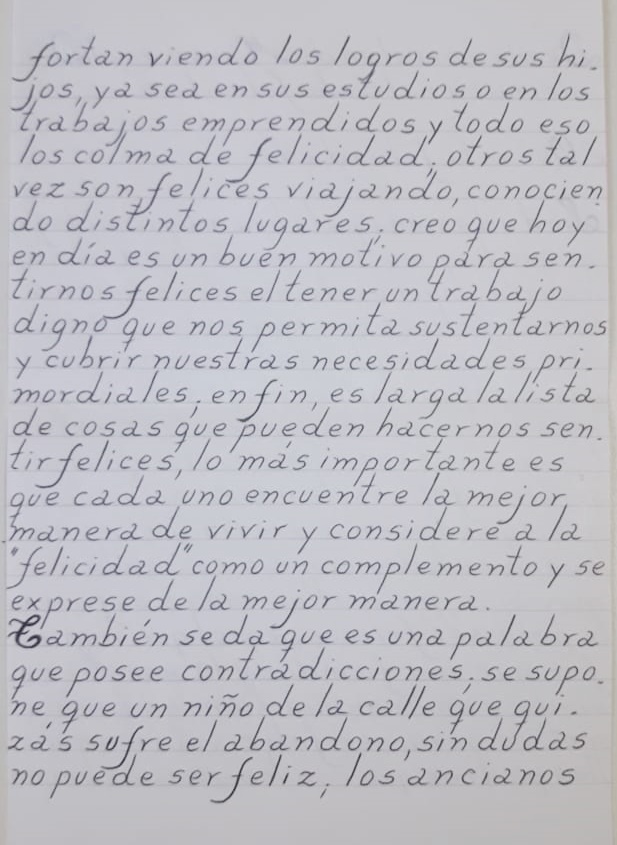 fortan viendo los logros de sus hi-
jos, ya sea en sus estudios o en los
trabajos emprendidos y todo eso
los colma de felicidad; otros tal
vez son felices viajando, conocien-
do distintos lugares; creo que hoy
en día es un buen motivo para sen-
tirnos felices el tener un trabajo
digno que nos permita sustentarnos
y cubrir nuestras necesidades pri-
mordiales; en fin, es larga la lista
de cosas que pueden hacernos sen-
tir felices, lo más importante es
que cada uno encuentre la mejor
manera de vivir y considere a la
"felicidad" como un complemento y se
exprese de la mejor manera.
También se da que es una palabra
que posee contradicciones; se supo-
ne que un niño de la calle que qui-
zás sufre el abandono, sin dudas
no puede ser feliz; los ancianos